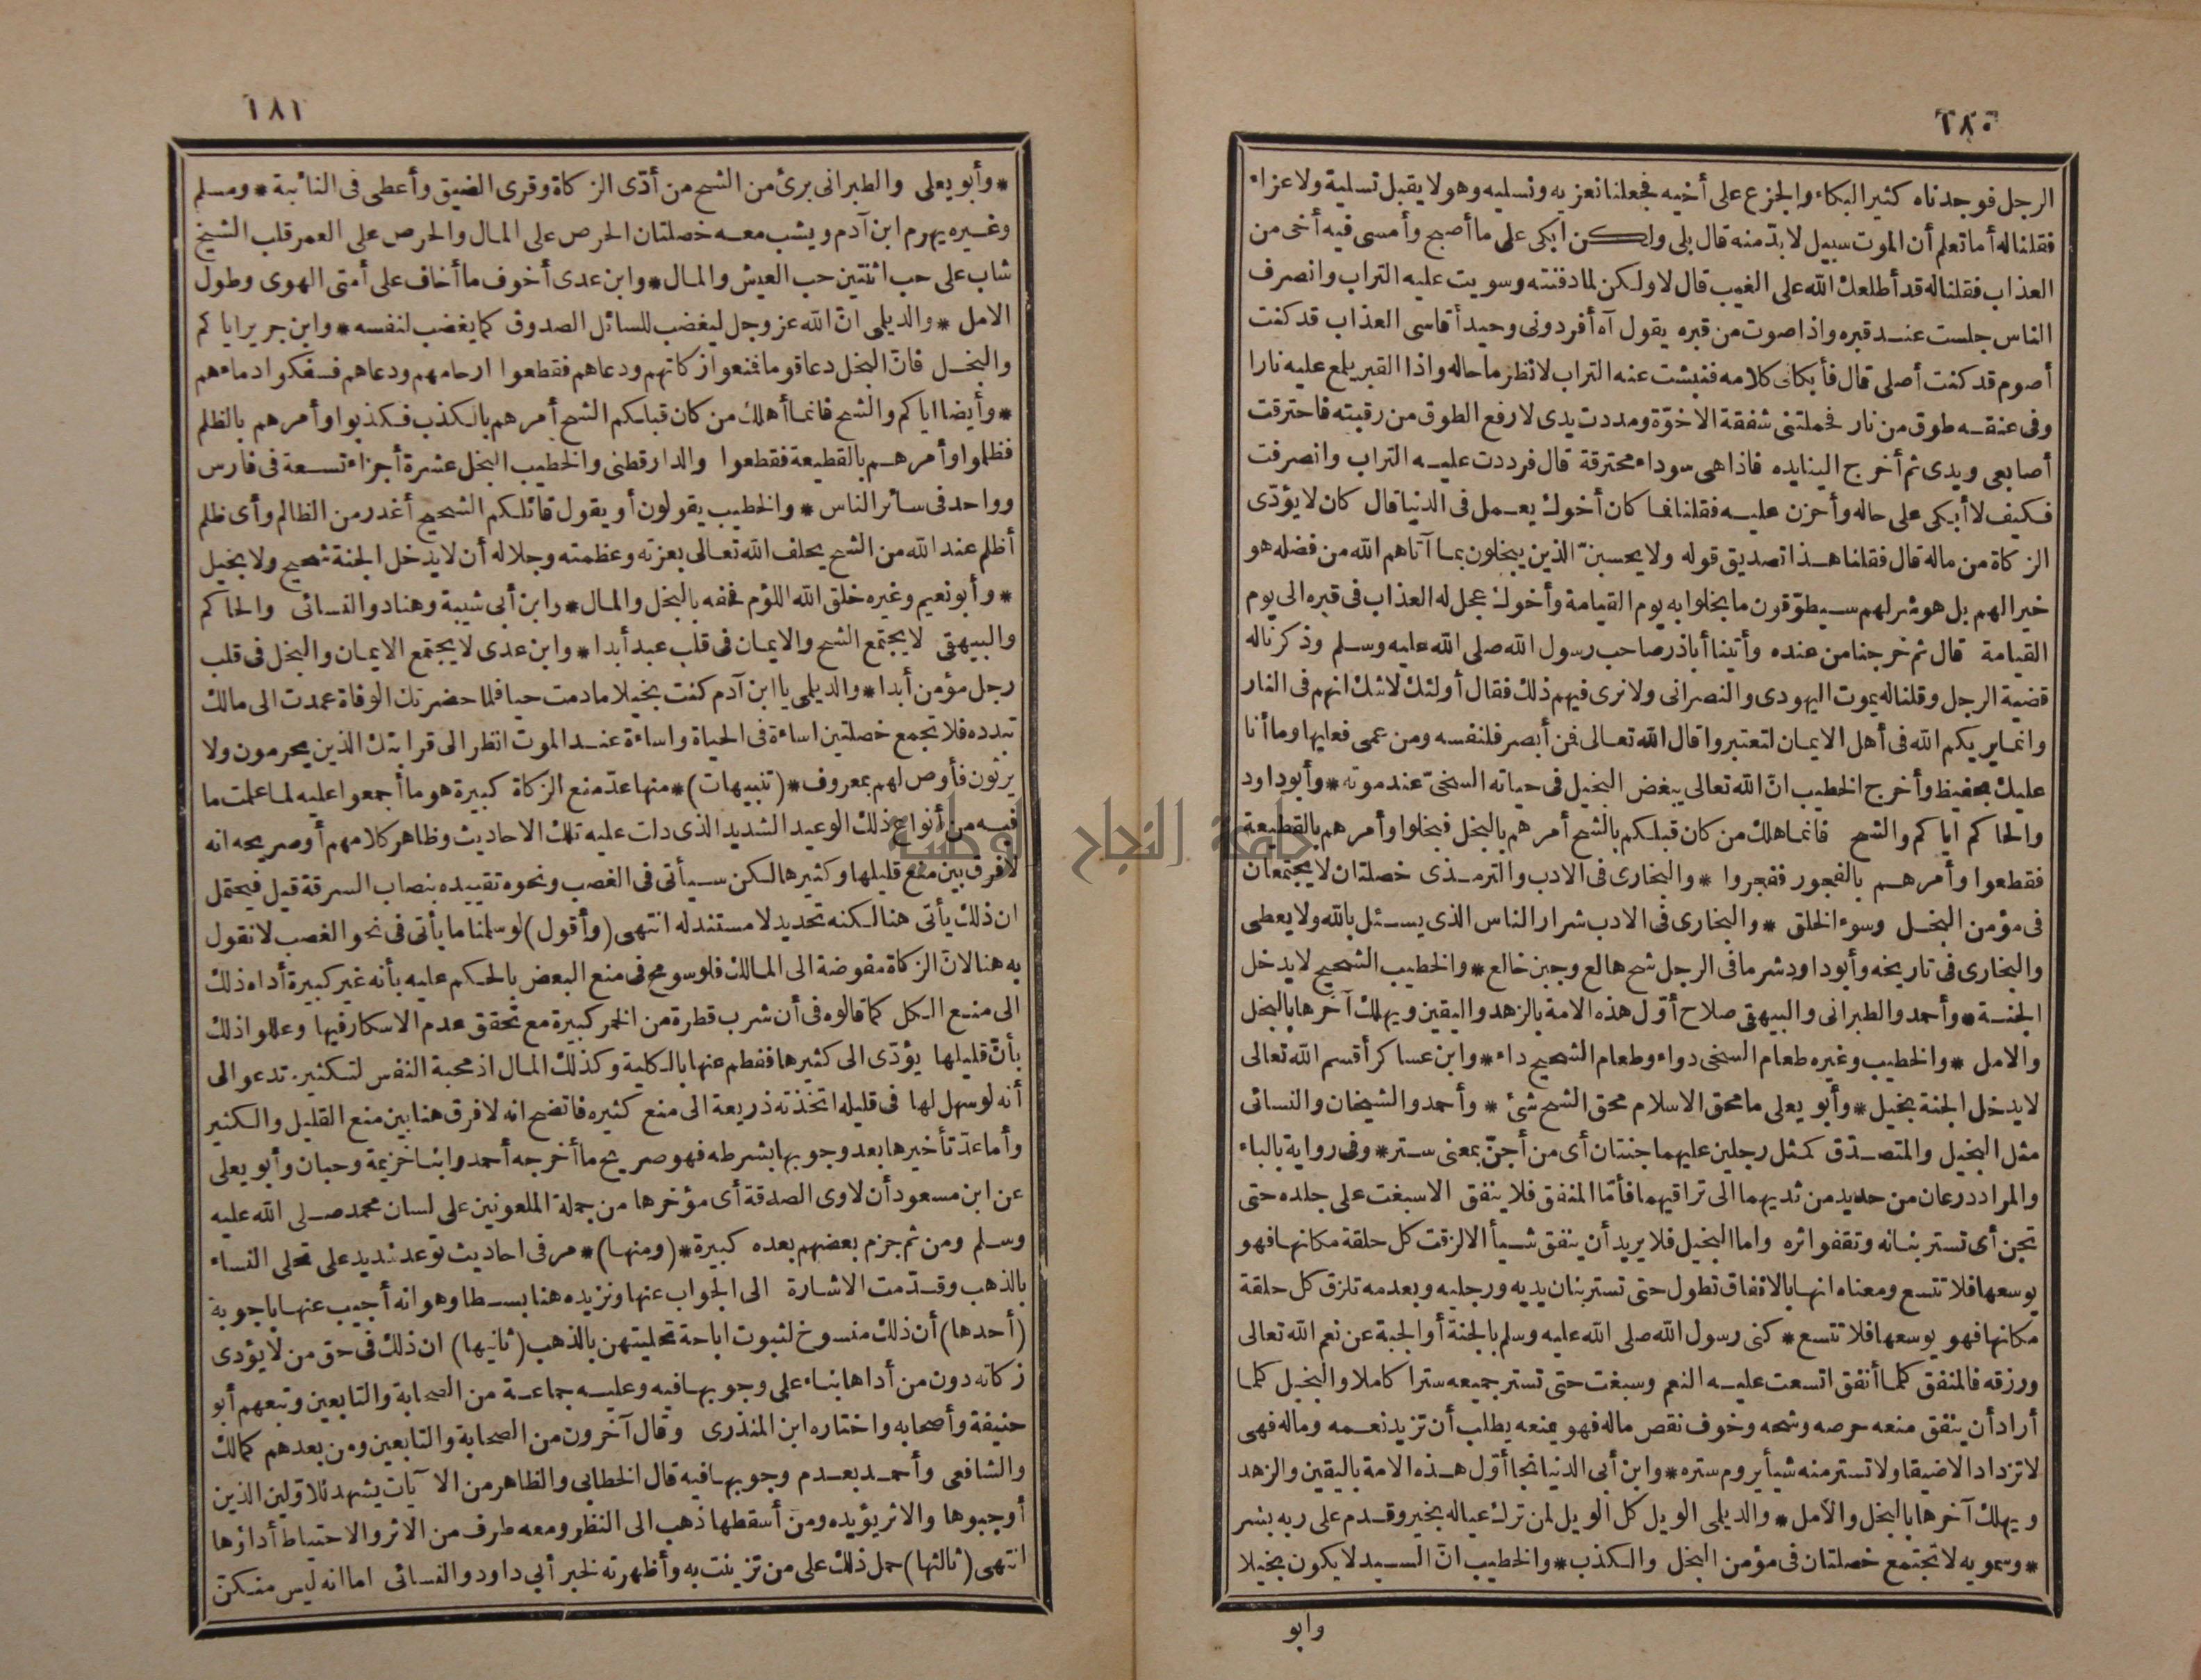 ٢٨٠
الرجل فوجدناه كثير البكاء والجزع على أخيه فجعلنا نعزيه ونسليه وهو لا يقبل تسلية ولا عزاء
فقلنا له أما تعلم أن الموت سبيل لا بدّ منه قال بلى ولكن ابكى على ما أصبح وأمسى فيه أخى من
العذاب فقلنا له قد أطلعك الله على الغيب قال لا ولكن لما دفنته وسويت عليه التراب وانصرف
الناس جلست عند قبره واذا صوت من قبره يقول آه أفردونى وحيدا أقاسى العذاب قد كنت
أصوم قد كنت أصلى قال فأبكانى كلامه فنبشت عنه التراب لانظر ما حاله واذا القبر يلمع عليه نارا
وفى عنقه طوق من نار فحملتنى شفقة الاخوّة ومددت يدى لارفع الطوق من رقبته فاحترقت
أصابعى ويدى ثم أخرج الينا يده فاذا هى سوداء محترقة قال فرددت عليه التراب وانصرفت
فكيف لا أبكى على حاله وأحزن عليه فقلنا فما كان أخوك يعمل فى الدنيا قال كان لا يؤدّى
الزكاة من ماله قال فقلنا هذا تصديق قوله ولا يحسبنّ الذين يبخلون بما آتاهم الله من فضله هو
خيرا لهم بل هو شر لهم سيطوّقون ما بخلوا به يوم القيامة وأخوك عجل له العذاب فى قبره الى يوم
القيامة قال ثم خرجنا من عنده وأتينا أباذر صاحب رسول الله صلى الله عليه وسلم وذكرنا له
قضية الرجل وقلنا له يموت اليهودى والنصرانى ولا نرى فيهم ذلك فقال أولئك لاشك انهم فى النار
وانما يريكم الله فى أهل الايمان لتعتبروا قال الله تعالى فمن أبصر فلنفسه ومن عمى فعليها وما أنا
عليك بحفيظ وأخرج الخطيب انّ الله تعالى يبغض البخيل فى حياته السخىّ عند موته * وأبو داود
والحاكم اياكم والشح فانما هلك من كان قبلكم بالشح أمرهم بالبخل فبخلوا وأمرهم بالقطيعة
فقطعوا وأمرهم بالفجور ففجروا * والبخارى فى الادب والترمذى خصلتان لا يجتمعان
فى مؤمن البخل وسوء الخلق * والبخارى فى الادب شرار الناس الذى يسئل بالله ولا يعطى
والبخارى فى تاريخه وأبو داود شر ما فى الرجل شح هالع وجبن خالع * والخطيب الشحيح لا يدخل
الجنة * وأحمد والطبرانى والبيهقى صلاح أوّل هذه الامة بالزهد واليقين ويهلك آخرها بالبخل
والامل * والخطيب وغيره طعام السخى دواء وطعام الشحيح داء * وابن عساكر أقسم الله تعالى
لا يدخل الجنة بخيل * وأبو يعلى ما محق الاسلام محق الشح شئ * وأحمد والشيخان والنسائى
مثل البخيل والمتصدّق كمثل رجلين عليهما جنتان أى من أجنّ بمعنى ستر * وفى رواية بالباء
والمراد درعان من حديد من ثديهما الى تراقيهما فأمّا المنفق فلا ينفق الا سبغت على جلده حتى
تجن أى تستر بنانه وتقفو اثره واما البخيل فلا يريد أن ينفق شيأ الا لزقت كل حلقة مكانها فهو
يوسعها فلا تتسع ومعناه انها بالانفاق تطول حتى تستر بنان يديه ورجليه وبعدمه تلزق كل حلقة
مكانها فهو يوسعها فلا تتسع * كنى رسول الله صلى الله عليه وسلم بالجنة أو الجبة عن نعم الله تعالى
ورزقه فالمنفق كلما أنفق اتسعت عليه النعم وسبغت حتى تستر جميعه سترا كاملا والبخيل كلما
أراد أن ينفق منعه حرصه وشحه وخوف نقص ماله فهو بمنعه يطلب أن تزيد نعمه وماله فهى
لا تزداد الا ضيقا ولا تستر منه شيأ يروم ستره * وابن أبى الدنيا نجا أوّل هذه الامة باليقين والزهد
ويهلك آخرها بالبخل والامل * والديلمى الويل كل الويل لمن ترك عياله بخير وقدم على ربه بشر
* وسمويه لا تجتمع خصلتان فى مؤمن البخل والكذب * والخطيب انّ السيد لا يكون بخيلا
وابو
٢٨١
* وأبو يعلى والطبرانى برئ من الشح من أدّى الزكاة وقرى الضيق وأعطى فى النائبة * ومسلم
وغيره يهرم ابن آدم ويشب معه خصلتان الحرص على المال والحرص على العمر قلب الشيخ
شاب على حب اثنتين حب العيش والمال * وابن عدى أخوف ما أخاف على أمتى الهوى وطول
الامل * والديلمى انّ الله عز وجل ليغضب للسائل الصدوق كما يغضب لنفسه * وابن جرير اياكم
والبخل فانّ البخل دعا قوما فمنعوا زكاتهم ودعاهم فقطعوا ارحامهم ودعاهم فسفكوا دماءهم
* وأيضا اياكم والشح فانما أهلك من كان قبلكم الشح أمرهم بالكذب فكذبوا وأمرهم بالظلم
فظلموا وأمرهم بالقطيعة فقطعوا والدارقطنى والخطيب البخل عشرة أجزاء تسعة فى فارس
وواحد فى سائر الناس * والخطيب يقولون أو يقول قائلكم الشحيح أغدر من الظالم وأى ظلم
أظلم عند الله من الشح يحلف الله تعالى بعزته وعظمته وجلاله أن لا يدخل الجنة شحيح ولا بخيل
* وأبو نعيم وغيره خلق الله اللؤم فحفه بالبخل والمال * وابن أبى شيبة وهناد والنسائى والحاكم
والبيهقى لا يجتمع الشح والايمان فى قلب عبد أبدا * وابن عدى لا يجتمع الايمان والبخل فى قلب
رجل مؤمن أبدا * والديلمى يا ابن آدم كنت بخيلا ما دمت حيا فلما حضرتك الوفاة عمدت الى مالك
تبدده فلا تجمع خصلتين اساءة فى الحياة واساءة عند الموت انظر الى قرابتك الذين يحرمون ولا
يرثون فأوص لهم بمعروف * (تنبيهات) * منها عدّ منع الزكاة كبيرة هو ما أجمعوا عليه لما علمت ما
فيه من أنواع ذلك الوعيد الشديد الذى دلت عليه تلك الاحاديث وظاهر كلامهم أو صريحه انه
لا فرق بين منع قليلها وكثيرها لكن سيأتى فى الغصب ونحوه تقييده بنصاب السرقة قيل فيحتمل
ان ذلك يأتى هنا لكنه تحديد لا مستند له انتهى (وأقول) لو سلمنا ما يأتى فى نحو الغصب لا نقول
به هنا لانّ الزكاة مفوضة الى المالك فلو سومح فى منع البعض بالحكم عليه بأنه غير كبيرة أداه ذلك
الى منع الكل كما قالوه فى أن شرب قطرة من الخمر كبيرة مع تحقق عدم الاسكار فيها وعللوا ذلك
بأنّ قليلها يؤدّى الى كثيرها ففطم عنها بالكلية وكذلك المال اذ محبة النفس لتكثيره تدعو الى
أنه لو سهل لها فى قليله اتخذته ذريعة الى منع كثيره فاتضح انه لا فرق هنا بين منع القليل والكثير
وأما عدّ تأخيرها بعد وجوبها بشرطه فهو صريح ما أخرجه أحمد وابنا خزيمة وحبان وأبو يعلى
عن ابن مسعود أن لاوى الصدقة أى مؤخرها من جملة الملعونين على لسان محمد صلى الله عليه
وسلم ومن ثم جزم بعضهم بعده كبيرة * (ومنها) * مر فى احاديث توعد شديد على تحلى النساء
بالذهب وقدّمت الاشارة الى الجواب عنها ونزيده هنا بسطا وهو انه أجيب عنها باجوبة
(أحدها) أن ذلك منسوخ لثبوت اباحة تحليتهن بالذهب (ثانيها) ان ذلك فى حق من لا يؤدى
زكاته دون من أداها بناء على وجوبها فيه وعليه جماعة من الصحابة والتابعين وتبعهم أبو
حنيفة وأصحابه واختاره ابن المنذرى وقال آخرون من الصحابة والتابعين ومن بعدهم كمالك
والشافعى وأحمد بعدم وجوبها فيه قال الخطابى والظاهر من الآيات يشهد للاوّلين الذين
أوجبوها والاثر يؤيده ومن أسقطها ذهب الى النظر ومعه طرف من الاثر والاحتياط أداؤها
انتهى (ثالثها) حمل ذلك على من تزينت به وأظهرته لخبر أبى داود والنسائى اما انه ليس منكنّ
جامعة النجاح الوطنية